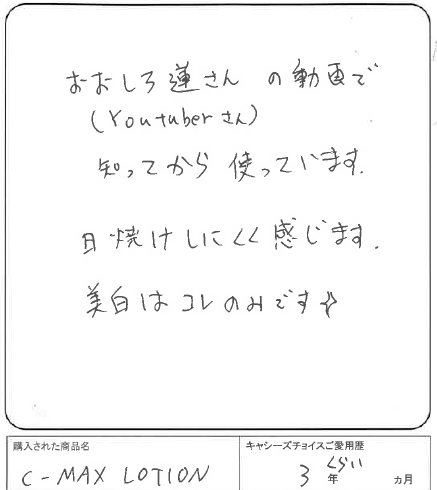 おおしろ蓮さん の動画で
(Youtuberさん)
知ってから 使っています.
日焼けしにくく感じます.
美白はコレのみです☆
購入された商品名
C-MAX LOTION
キャシーズチョイスご愛用歴
3年くらい ヵ月